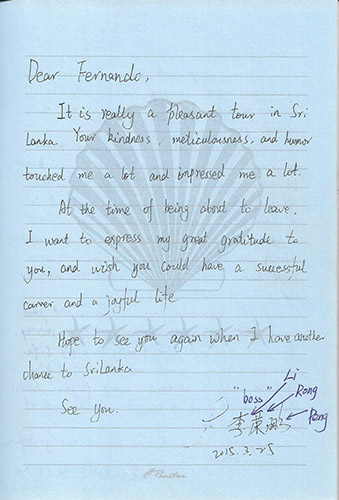 Dear Fernando,
It is really a pleasant tour in Sri
Lanka Your kindness, meticulousness, and humor
touched me a lot and impressed me a lot.
At the time of being about to leave,
I want to express my great gratitude to
you, and wish you could have a successful
career and a joyful life
Hope to see you again when I have another
chance to SriLanka
See You.
"boss" Li
Rong
Peng
李荣鹏
2015.3.25
Panther